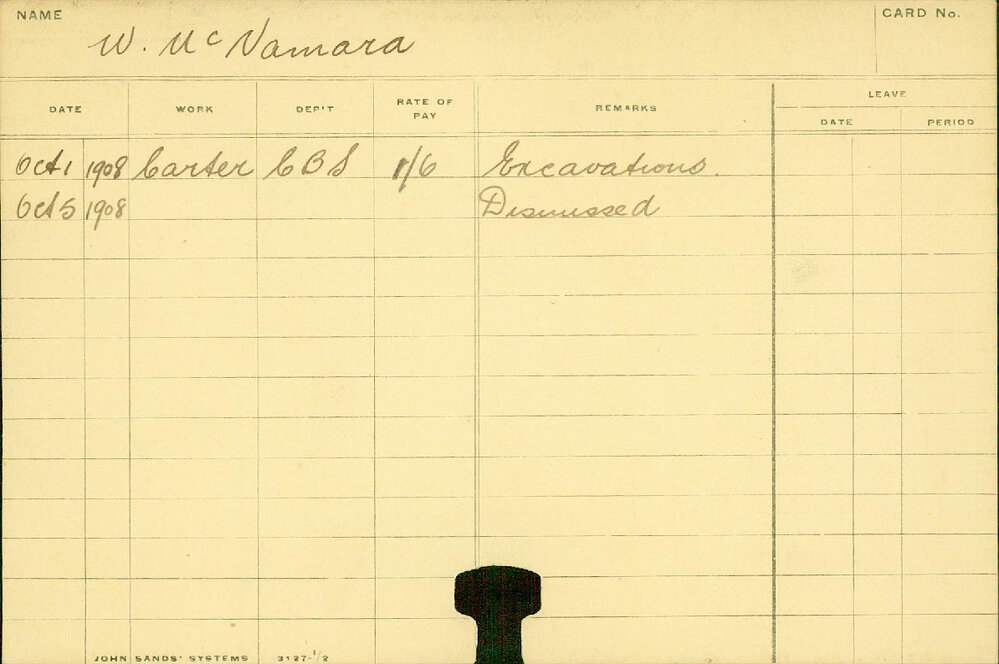 NAME
CARD No.
W. McNamara
DATE WORK DEP'T RATE OF PAY REMARKS LEAVE
DATE PERIOD
Oct 1 1908 Carter CBS 1/6 Excavations.
Oct 5 1908 Dismissed
JOHN SANDS' SYSTEMS 3127-1/2